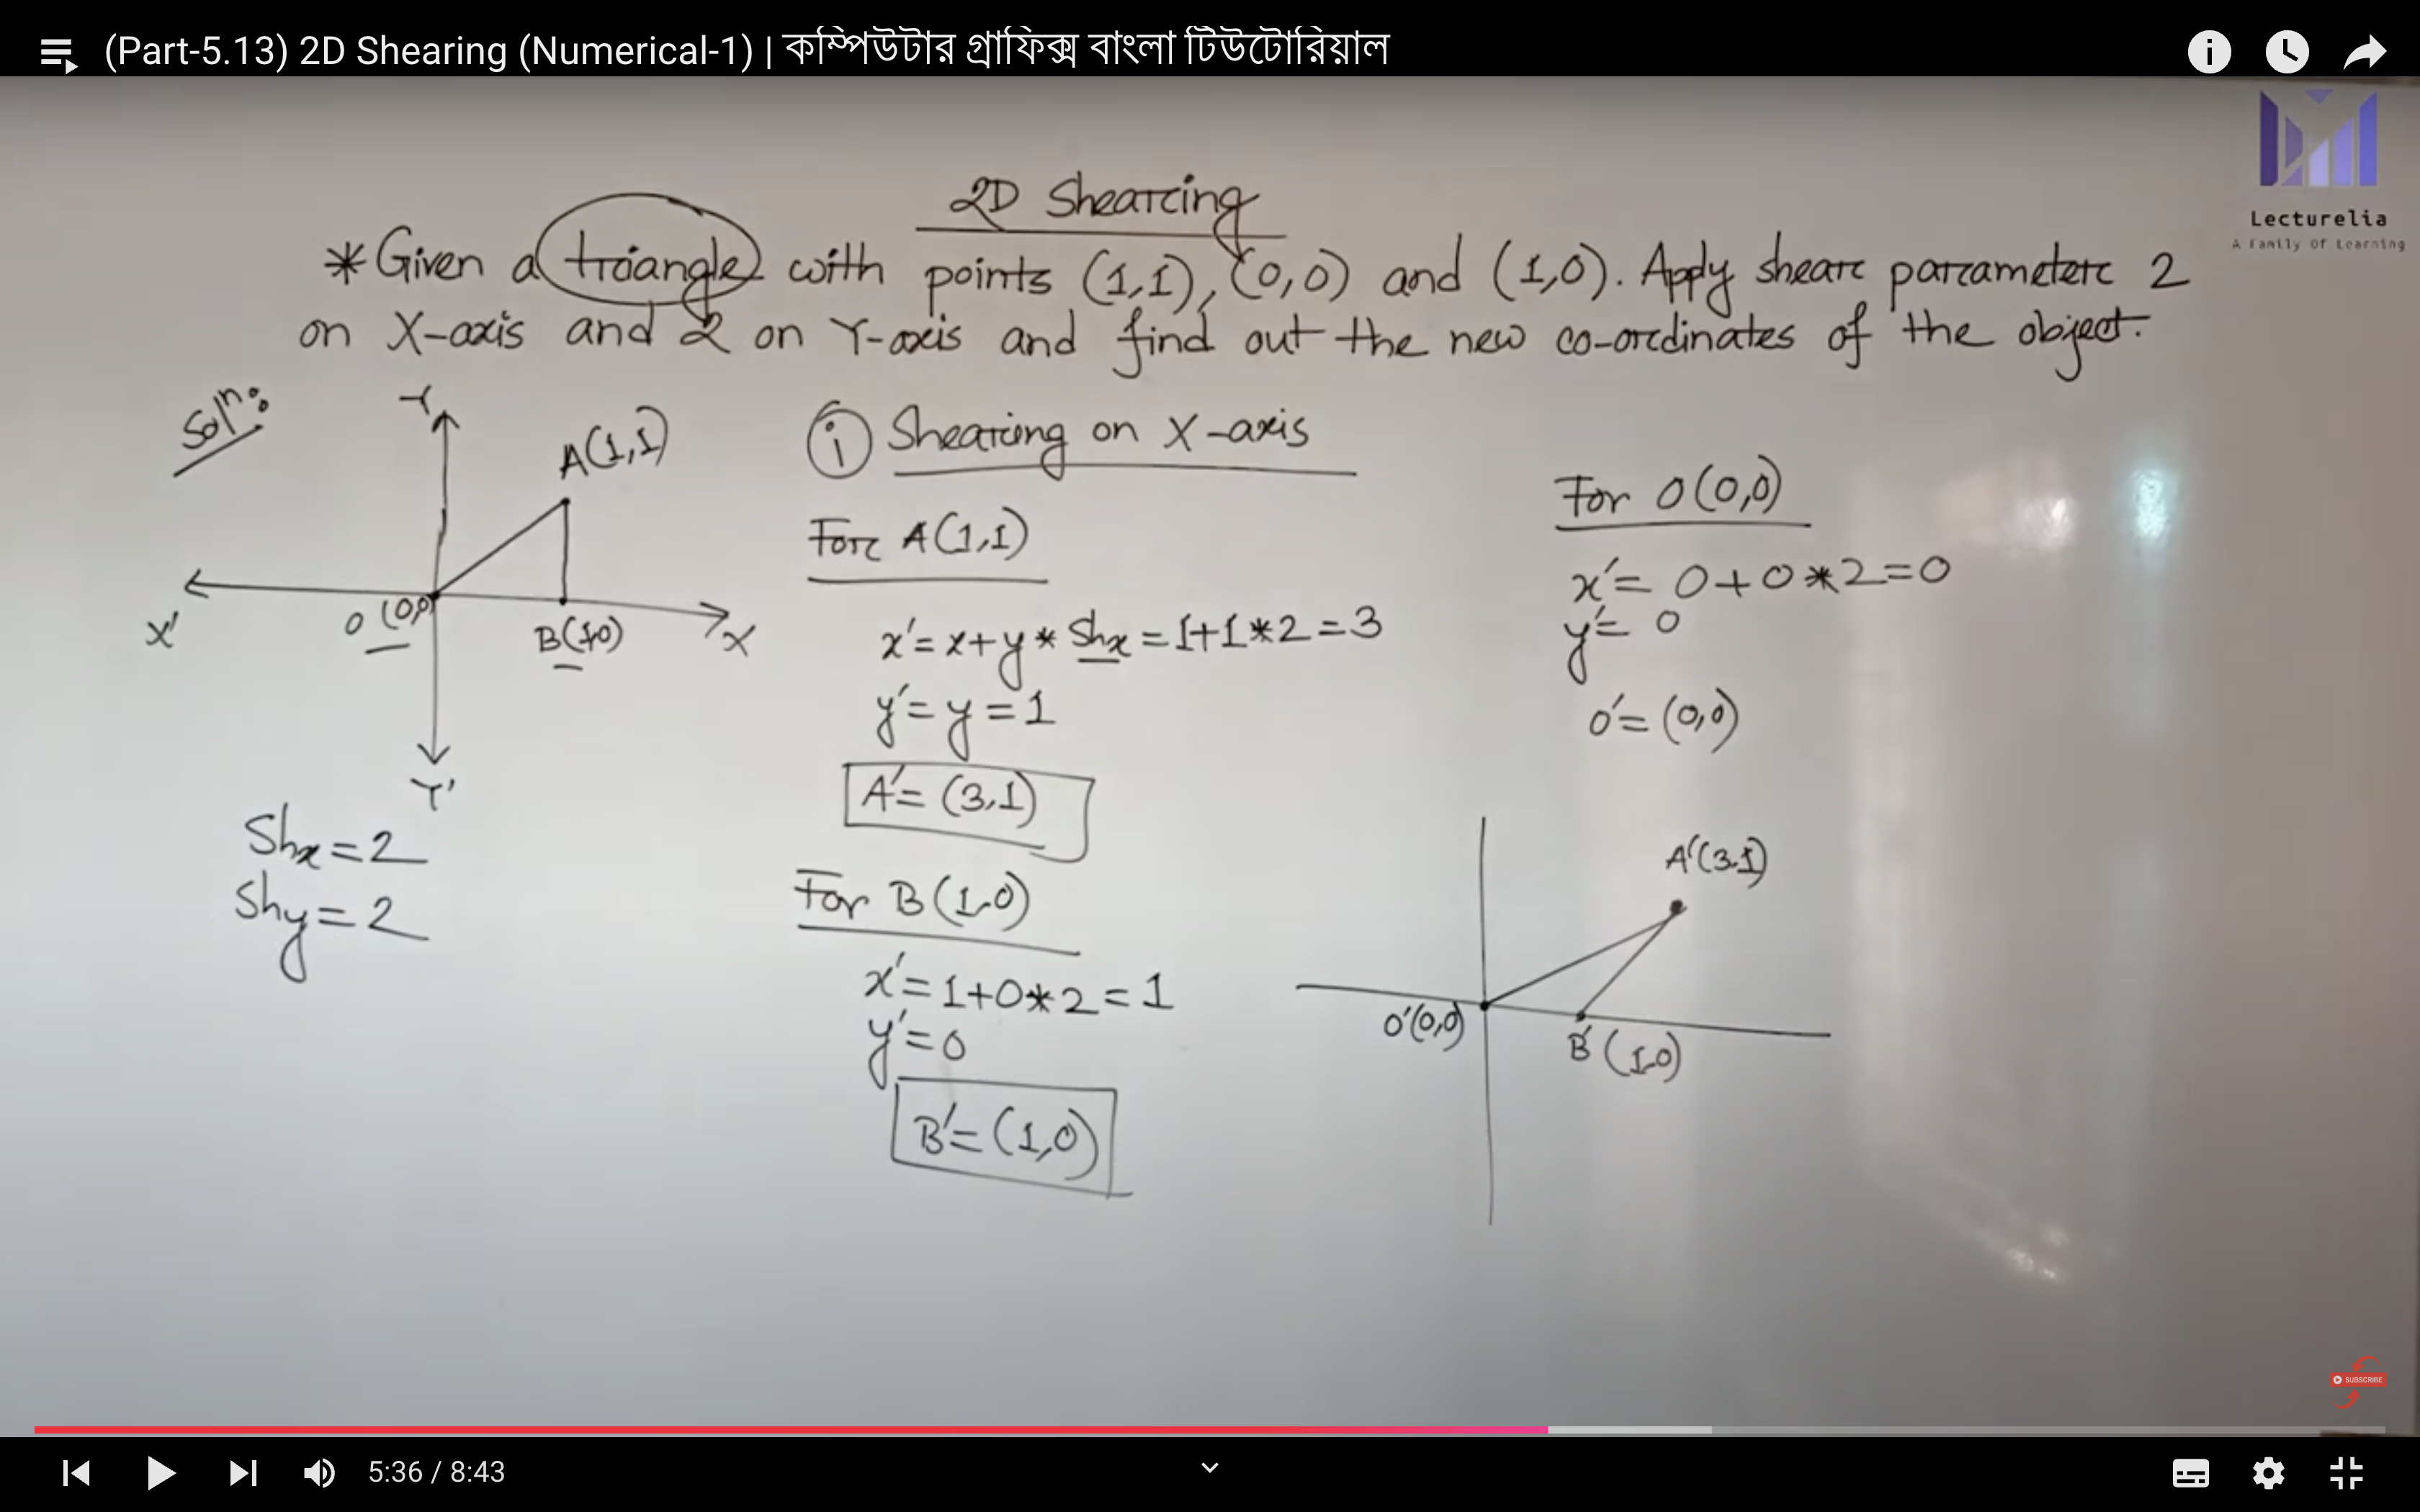 (Part-5.13) 2D Shearing (Numerical-1) | কম্পিউটার গ্রাফিক্স বাংলা টিউটোরিয়াল
Lecturelia
A Family Of Learning
2D Shearing
*Given a triangle with points (1,1), (0,0) and (1,0). Apply shear parameter 2
on X-axis and 2 on Y-axis and find out the new co-ordinates of the object.
Solⁿ:
Y
A(1,1)
X'
O (0,0)
B(1,0)
X
Y'
Shx=2
Shy=2
i Shearing on X-axis
For A(1,1)
x'= x+y * Shx = 1+1*2 = 3
y'= y = 1
A'= (3,1)
For B(1,0)
x'= 1+0*2 = 1
y'= 0
B'= (1,0)
For O(0,0)
x'= 0+0*2=0
y'= 0
O'= (0,0)
A'(3,1)
O'(0,0)
B'(1,0)
SUBSCRIBE
5:36 / 8:43